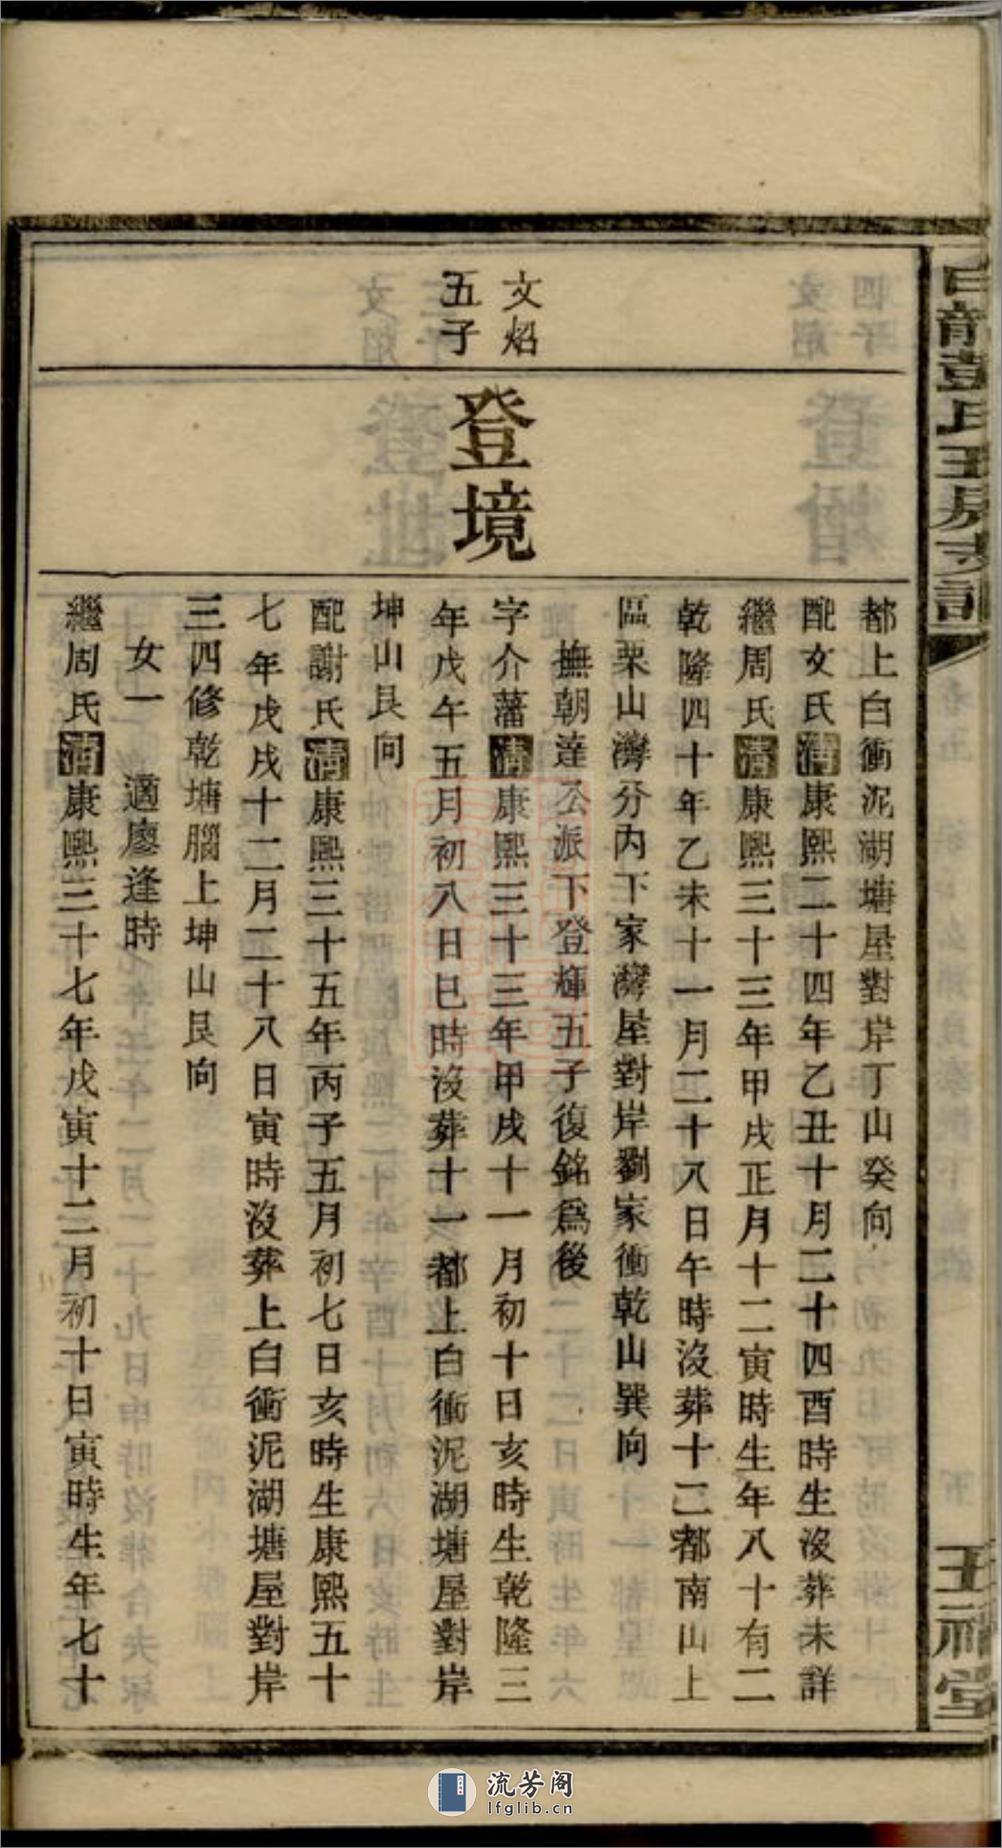 都上白衝泥湖塘屋對岸丁山癸向
配文氏清康熙二十四年乙丑十月二十四酉時生沒葬未詳
繼周氏清康熙三十三年甲戌正月十二寅時生年八十有二
乾隆四十年乙未十一月二十八日午時沒葬十二都南山上
區栗山灣分內下家灣屋對岸劉家衝乾山巽向
撫朝達公派下登輝五子復銘爲後
文焰
五子
登境
字介藩清康熙三十三年甲戌十一月初十日亥時生乾隆三
年戊午五月初八日巳時沒葬十一都上白衝泥湖塘屋對岸
坤山艮向
配謝氏清康熙三十五年丙子五月初七日亥時生康熙五十
七年戊戌十二月二十八日寅時沒葬上白衝泥湖塘屋對岸
三四修乾塘腦上坤山艮向
女一 適廖逢時
繼周氏清康熙三十七年戊寅十二月初十日寅時生年七十
流芳阁
lfglib.cn